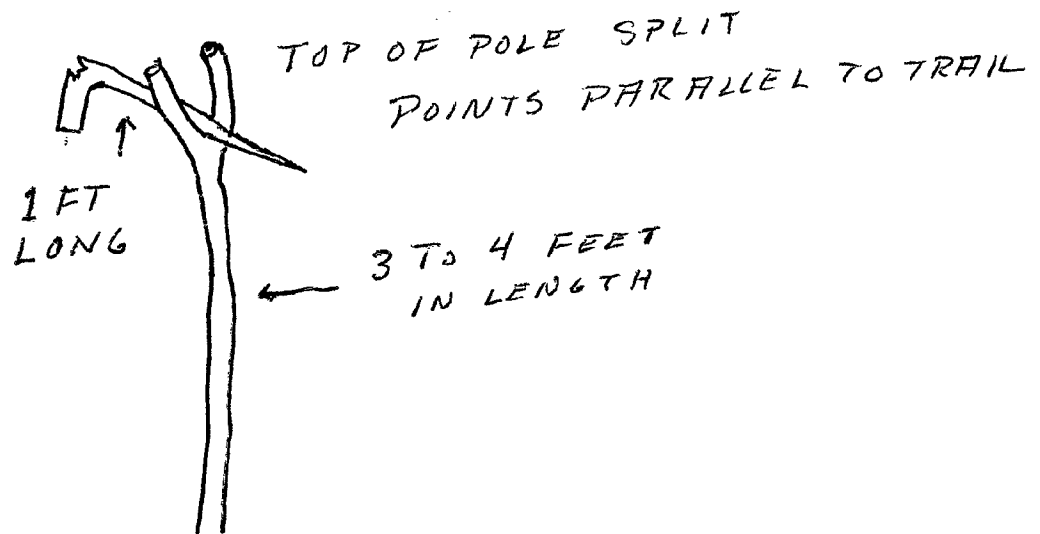 TOP OF POLE SPLIT
POINTS PARALLEL TO TRAIL
1 FT
LONG
3 TO 4 FEET
IN LENGTH